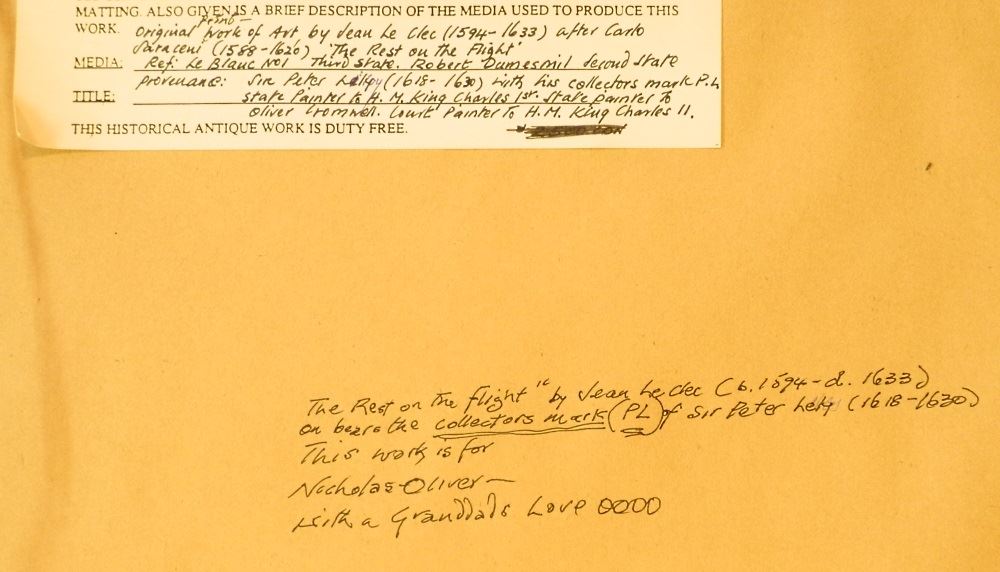 MATTING. ALSO GIVEN IS A BRIEF DESCRIPTION OF THE MEDIA USED TO PRODUCE THIS
WORK. Original Print Work of Art by Jean Le Clec (1594-1633) after Carlo
Saraceni (1588-1620) 'The Rest on the Flight'
MEDIA: Ref: Le Blanc No1 Third State. Robert Dumesnil second state
provenance: Sir Peter Lely (1618-1630) with his collectors mark P.L
TITLE: state Painter to H.M. King Charles 1st. State painter to
Oliver Cromwell. Court Painter to H.M. King Charles 11.
THIS HISTORICAL ANTIQUE WORK IS DUTY FREE.
The Rest on the Flight" by Jean Le Clec (b.1594-d. 1633)
on bears the collectors mark (PL) of Sir Peter Lely (1618-1630)
This work is for
Nicholas-Oliver-
with a Granddads Love OOOO